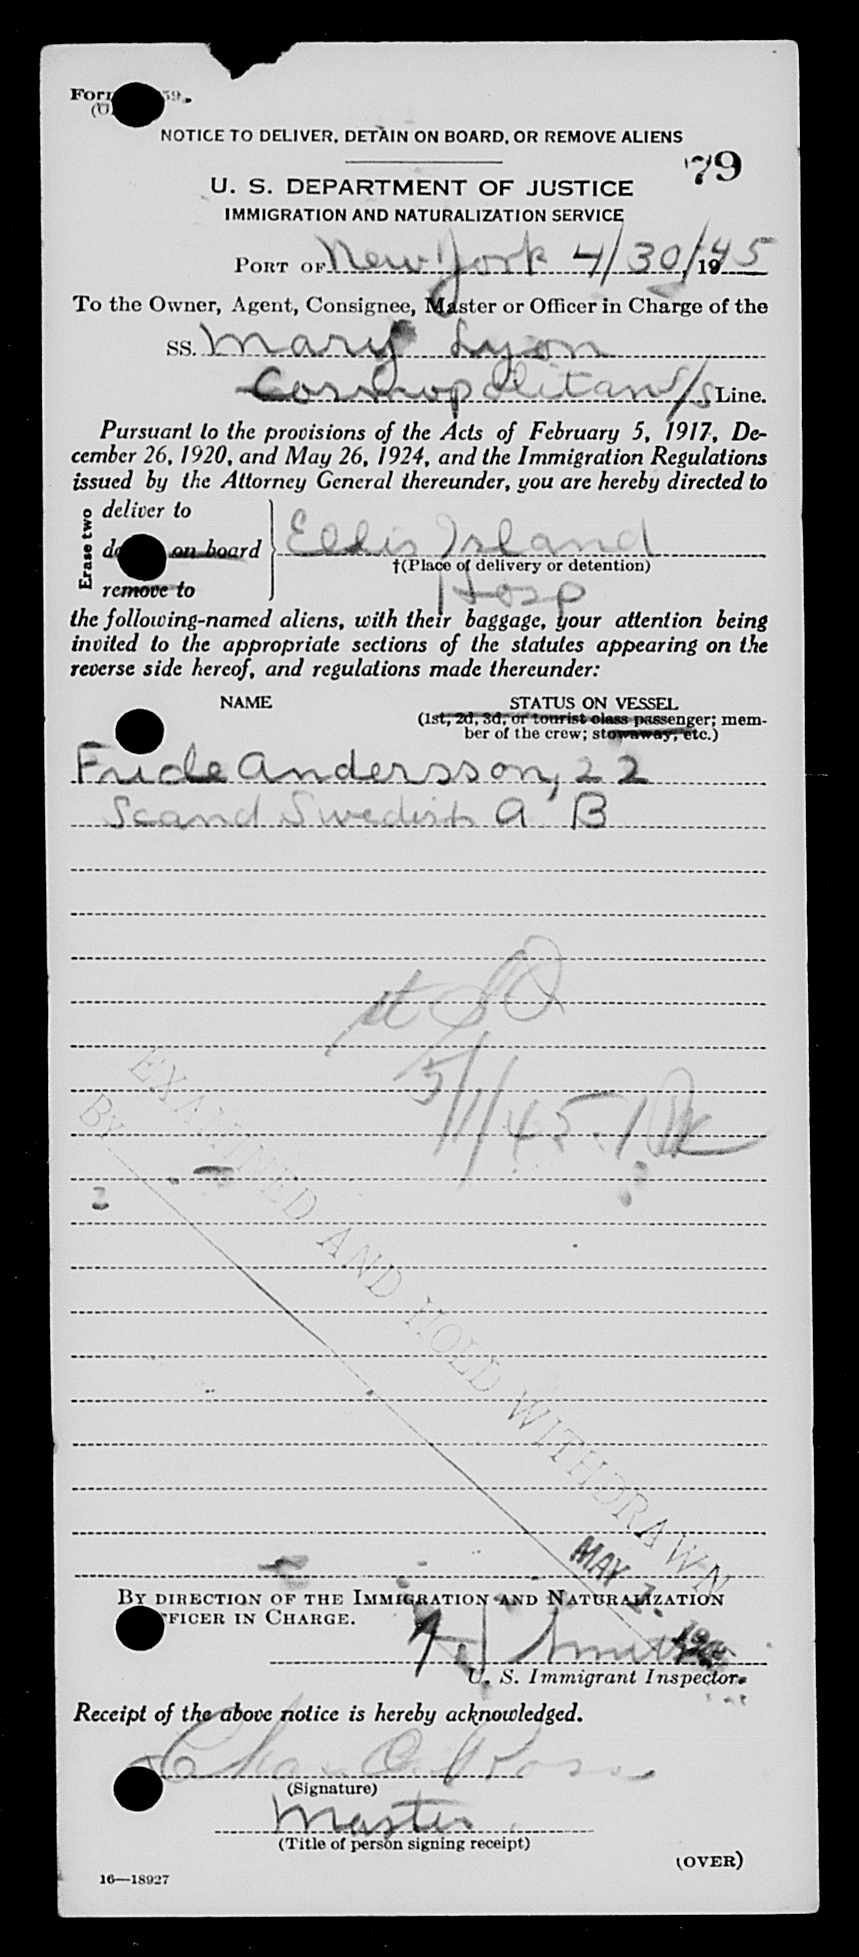 59.
NOTICE TO DELIVER, DETAIN ON BOARD, OR REMOVE ALIENS
79
U. S. DEPARTMENT OF JUSTICE
IMMIGRATION AND NATURALIZATION SERVICE
PORT OF New York 4/30/1945
To the Owner, Agent, Consignee, Master or Officer in Charge of the
SS. Mary Lyon
Cosmopolitan S/S Line.
Pursuant to the provisions of the Acts of February 5, 1917, De-
cember 26, 1920, and May 26, 1924, and the Immigration Regulations
issued by the Attorney General thereunder, you are hereby directed to
Erase two
deliver to
on board
remove to
Ellis Island
†(Place of delivery or detention)
Hosp
the following-named aliens, with their baggage, your attention being
invited to the appropriate sections of the statutes appearing on the
reverse side hereof, and regulations made thereunder:
NAME STATUS ON VESSEL
(1st, 2d, 3d, or tourist class passenger; mem-
ber of the crew; stowaway, etc.)
Fride Andersson, 22
Scand Swedish A B
5/1/45
EXAMINED AND HOLD WITHDRAWN
BY
MAY 1. 1945
BY DIRECTION OF THE IMMIGRATION AND NATURALIZATION
OFFICER IN CHARGE.
Smith
U. S. Immigrant Inspector.
Receipt of the above notice is hereby acknowledged.
Chas O. Ross
(Signature)
Master
(Title of person signing receipt)
(OVER)
16—18927